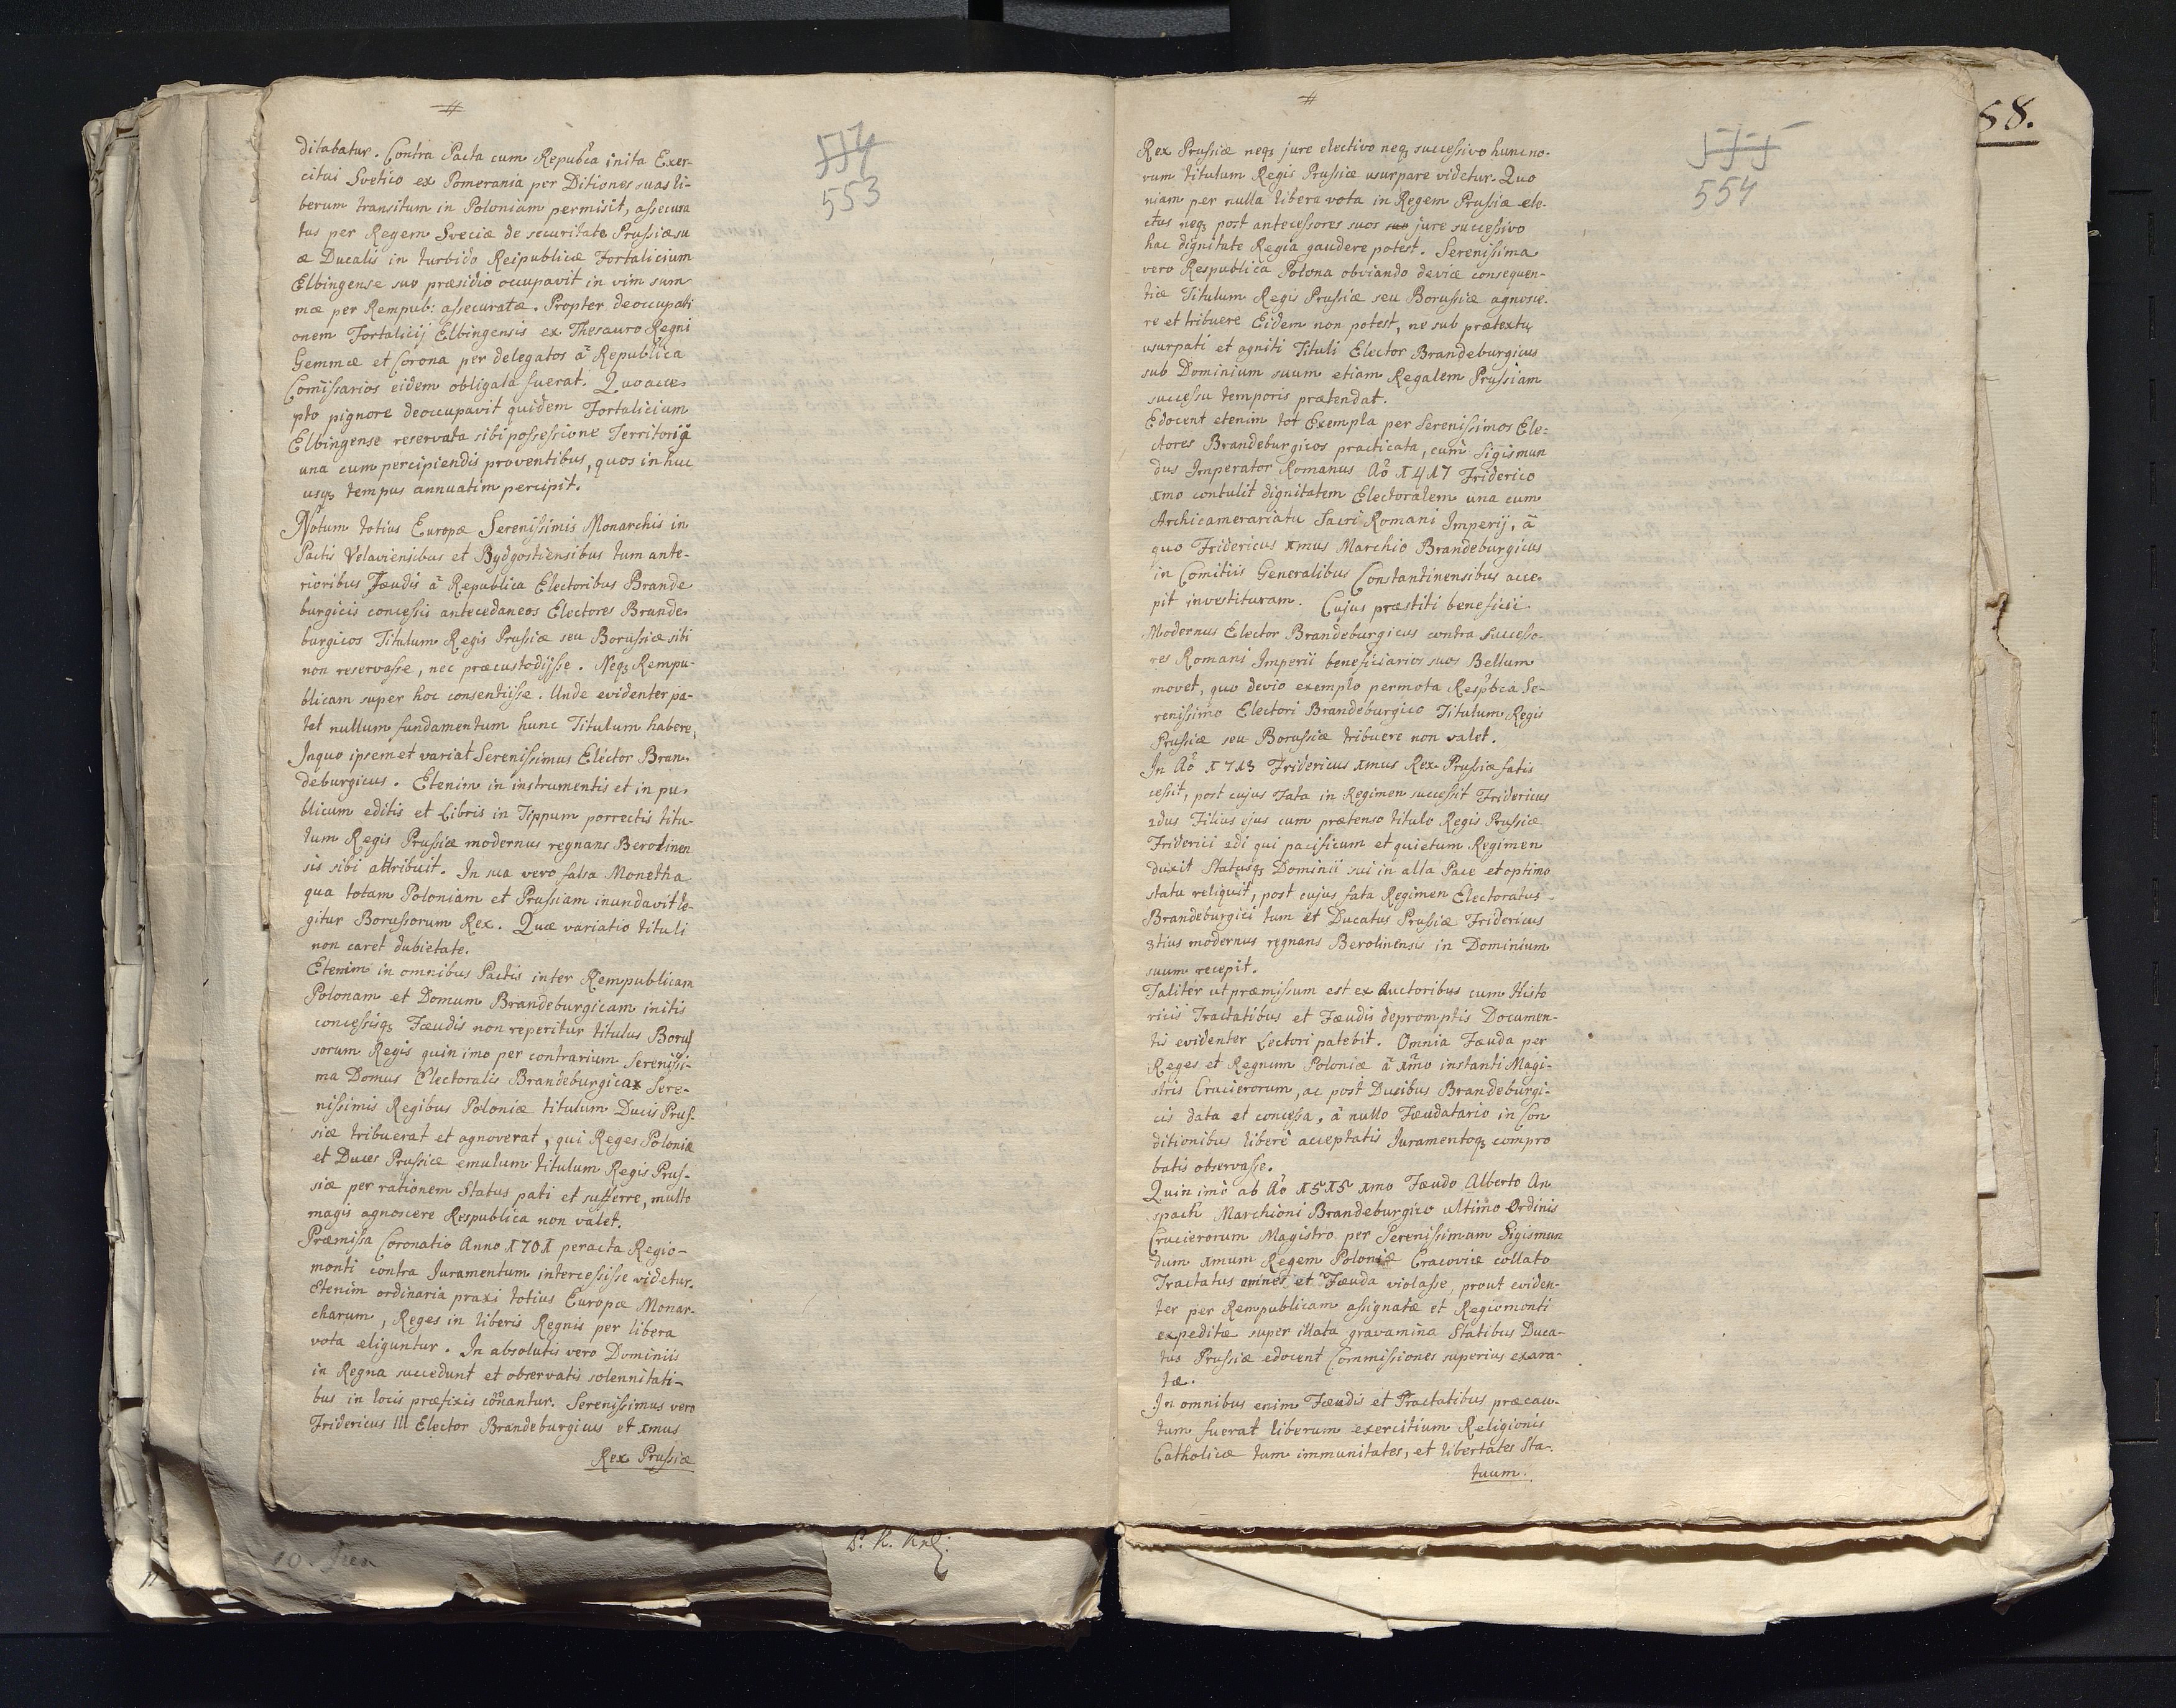 ditabatur. Contra Pacta cum Repubca inita Exer-
citui Svetico ex Pomerania per Ditiones suas li-
berum transitum in Poloniam permisit, assecura
tus per Regem Sveciæ de securitate Prussiæ su
æ Ducalis in turbido Reipublicæ Fortalicium
Elbingense suo præsidio occupavit in vim sum
mæ per Rempub: assecuratæ. Propter deoccupati
onem Fortalicij Elbingensis ex Thesauro Regni
Gemmæ et Corona per delegatos â Republica
Comissarios eidem obligata fuerat. Quo acce-
pto pignore deoccupavit quidem Fortalicium
Elbingense reservata sibi possessione Territorij
una cum percipiendis proventibus, quos in huc
usq; tempus annuatim percipit.
Notum totius Europæ Serenissimis Monarchis in
Pactis Velaviensibus et Bydgostiensibus tum ante-
rioribus Fœudis â Republica Electoribus Brande
burgicis concessis antecedaneos Electores Brande-
burgicos Titulum Regis Prussiæ seu Borussiæ sibi
non reservasse, nec præcustodijsse. Neq; Rempu-
blicam super hoc consentiisse. Unde evidenter pa-
tet nullum fundamentum hunc Titulum habere,
In quo ipsemet variat Serenissimus Elector Bran-
deburgicus. Etenim in instrumentis et in pu-
blicum editis et Libris in Tippum porrectis titu-
lum Regis Prussiæ modernus regnans Berolinen
sis sibi attribuit. In sua vero falsa Monetha
qua totam Poloniam et Prussiam inundavit le-
gitur Borussorum Rex. Quæ variatio tituli
non caret dubietate.
Etenim in omnibus Pactis inter Rempublicam
Polonam et Domum Brandeburgicam initis
concessisq; Fœudis non reperitur titulus Borus
sorum Regis quin imo per contrarium Serenissi-
ma Domus Electoralis Brandeburgica Sere-
nissimis Regibus Poloniæ titulum Ducis Prus-
siæ tribuerat et agnoverat, qui Reges Poloniæ
et Duces Prussiæ emulum titulum Regis Prus-
siæ per rationem Status pati et sufferre, multo
magis agnoscere Respublica non valet.
Præmissa Coronatio Anno 1701 peracta Regio-
monti contra Juramentum intercessisse videtur.
Etenim ordinaria praxi totius Europæ Monar-
charum, Reges in liberis Regnis per libera
vota eliguntur. In absolutis vero Dominiis
in Regna succedunt et observatis solennitati-
bus in locis præfixis coronantur. Serenissimus vero
Fridericus III Elector Brandeburgicus et 1mus
Rex Prussiæ
553
10.
P. K.
Rex Prussiæ neq; jure electivo neq; successivo hunc no-
vum titulum Regis Prussiæ usurpare videtur. Quo
niam per nulla libera vota in Regem Prussiæ ele-
ctus neq; post antecessores suos suo jure successivo
hac dignitate Regia gaudere potest. Serenissima
vero Respublica Polona obviando deviæ consequen-
tiæ Titulum Regis Prussiæ seu Borussiæ agnosce-
re et tribuere Eidem non potest, ne sub prætextu
usurpati et agniti Tituli Elector Brandeburgicus
sub Dominium suum etiam Regalem Prussiam
successu temporis prætendat.
Edocent etenim tot Exempla per Serenissimos Ele-
ctores Brandeburgicos practicata, cum Sigismun
dus Imperator Romanus Ao 1417 Friderico
1mo contulit dignitatem Electoralem una cum
Archicamerariatu Sacri Romani Imperij, â
quo Fridericus 1mus Marchio Brandeburgicus
in Comitiis Generalibus Constantinensibus acce-
pit investituram. Cujus præstiti beneficii
Modernus Elector Brandeburgicus contra successo-
res Romani Imperii beneficiarios suos Bellum
movet, quo devio exemplo permota Respbca Se-
renissimo Electori Brandeburgico Titulum Regis
Prussiæ seu Borussiæ tribuere non valet.
In Ao 1713 Fridericus 1mus Rex Prussiæ fatis
cessit, post cujus Fata in Regimen successit Fridericus
2dus Filius ejus cum prætenso titulo Regis Prussiæ
Friderici 2di qui pacificum et quietum Regimen
duxit Statusq; Dominii sui in alta Pace et optimo
statu reliquit, post cujus fata Regimen Electoratus
Brandeburgici tum et Ducatus Prussiæ Fridericus
3tius modernus regnans Berolinensis in Dominium
suum recepit.
Taliter ut præmissum est ex Auctoribus cum Histo
ricis Tractatibus et Fœudis depromptis Documen-
tis evidenter Lectori patebit. Omnia Fœuda per
Reges et Regnum Poloniæ â 1mo instanti Magi-
stris Crucierorum, ac post Ducibus Brandeburgi-
cis data et concessa, â nullo Fœudatario in Con
ditionibus liberè acceptatis Juramentoq; compro
batis observasse.
Quin imò ab Ao 1515 1mo Fœudo Alberto An
spach Marchioni Brandeburgico ultimo Ordinis
Crucierorum Magistro per Serenissimum Sigismun
dum 1mum Regem Poloniæ Cracoviæ collato
Tractatus omnes et Fœuda violasse, prout eviden-
ter per Rempublicam assignatæ et Regiomonti
expeditæ super illata gravamina Statibus Duca-
tus Prussiæ edocent Commissiones superius exara-
tæ.
In omnibus enim Fœudis et Tractatibus præcau-
tum fuerat liberum exercitium Religionis
Catholicæ tum immunitates, et libertates Sta-
tuum.
555
554
58.